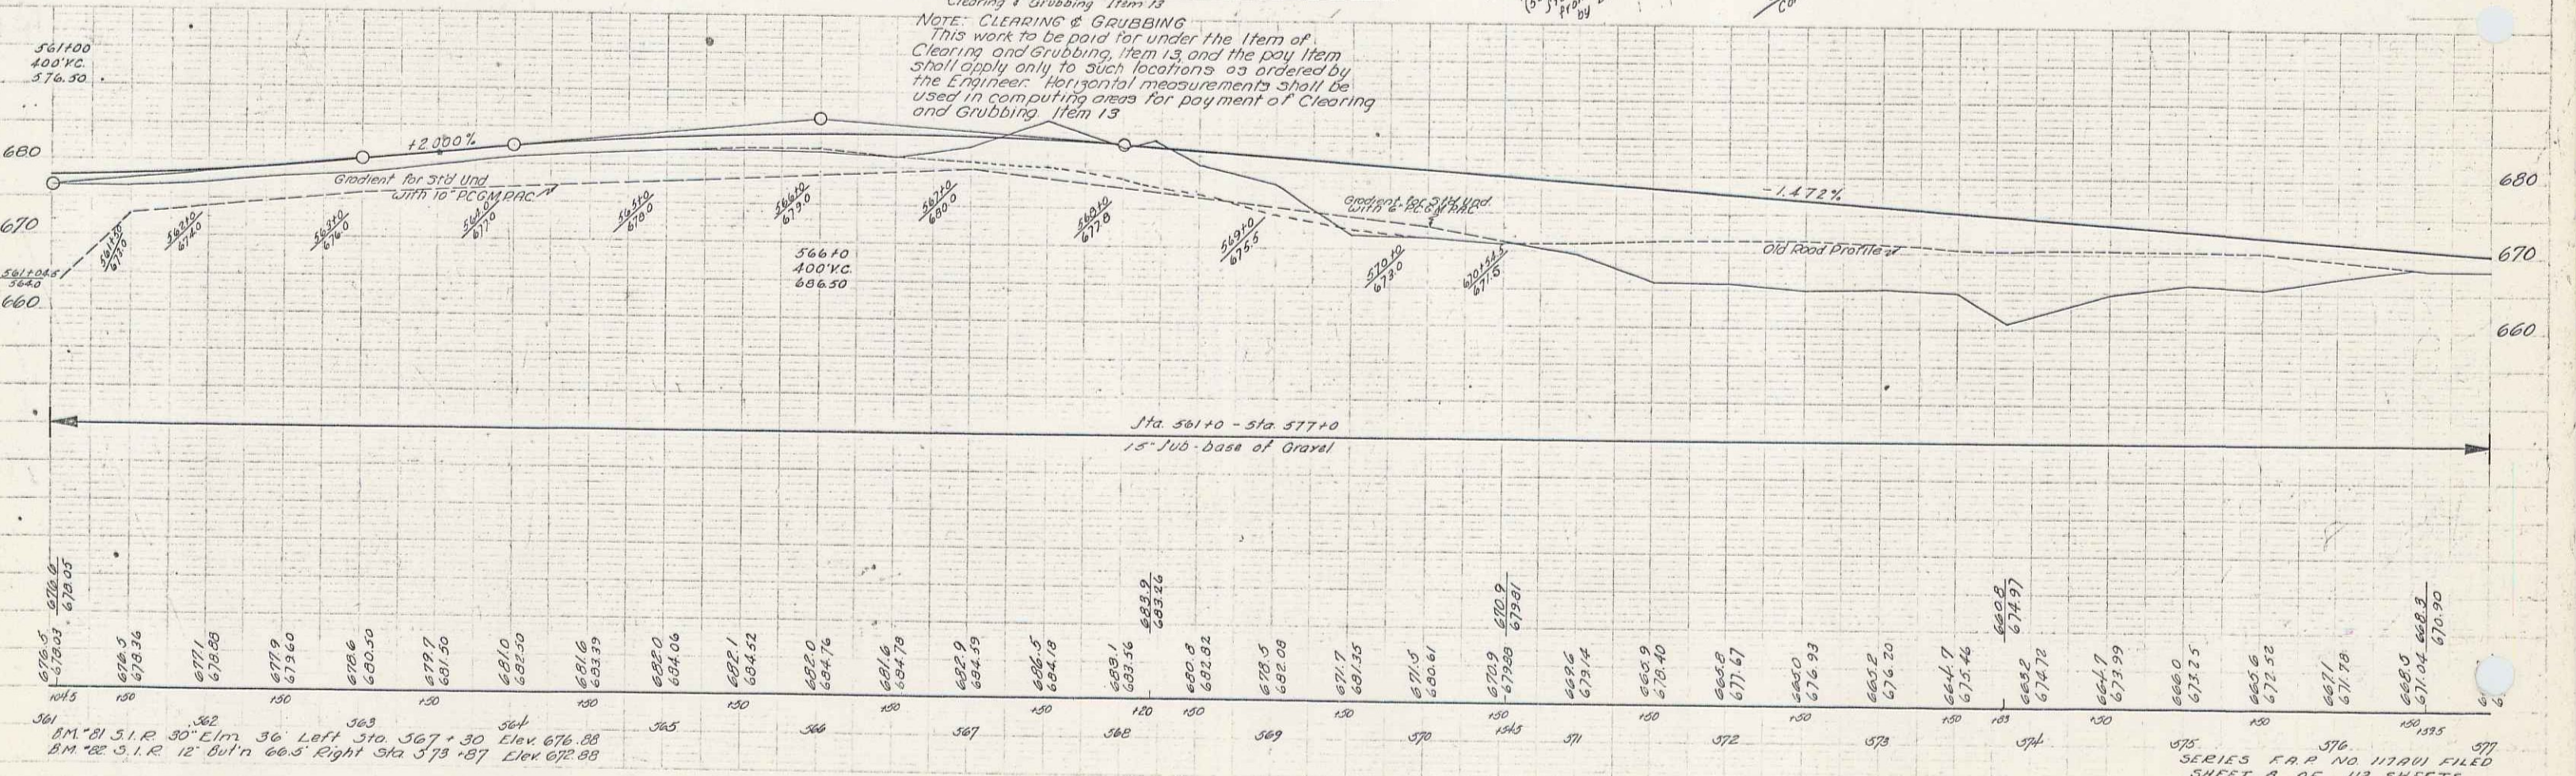 Clearing & Grubbing Item 13
NOTE: CLEARING & GRUBBING
This work to be paid for under the Item of
Clearing and Grubbing, Item 13, and the pay Item
shall apply only to such locations as ordered by
the Engineer. Horizontal measurements shall be
used in computing areas for payment of Clearing
and Grubbing Item 13
by
561+00
400'V.C.
576.50
680
670
660
+2.000%
Gradient for St'd Und
with 10" P.C.G.M.P.A.C.
561+04.5
564.0
561+50
673.0
562+0
674.0
563+0
676.0
564+0
677.0
565+0
678.0
566+0
679.0
567+0
680.0
568+0
677.8
569+0
675.5
570+0
673.0
570+54.5
671.5
566+0
400'V.C.
686.50
Gradient for St'd Und.
with 6" P.C.G.M.P.A.C.
-1.472%
Old Road Profile
680
670
660
Sta. 561+0 - Sta. 577+0
15" Sub-base of Gravel
676.6
678.05
683.9
683.26
670.9
679.81
660.8
674.97
668.3
670.90
676.5
678.03
676.5
678.36
677.1
678.88
677.9
679.60
678.6
680.50
679.7
681.50
681.0
682.50
681.6
683.39
682.0
684.06
682.1
684.52
682.0
684.76
681.6
684.78
682.9
684.59
686.5
684.18
683.1
683.56
680.8
682.82
678.5
682.08
671.7
681.35
671.5
680.61
670.9
679.88
669.6
679.14
665.9
678.40
665.8
677.67
665.0
676.93
665.2
676.20
664.7
675.46
663.2
674.72
664.7
673.99
666.0
673.25
665.6
672.52
667.1
671.78
668.5
671.04
+04.5 +50 +50 +50 +50 +50 +50 +50 +50 +20 +50 +50 +50 +54.5 +50 +50 +50 +83 +50 +50 +50 +59.5
561 562 563 564 565 566 567 568 569 570 571 572 573 574 575 576 577
B.M. #81 S.I.R. 30" Elm 36' Left Sta. 567+30 Elev. 676.88
B.M. #82 S.I.R. 12" But'n 66.5' Right Sta. 573+87 Elev. 672.88
SERIES F.A.P. NO. 117A(1) FILED
SHEET 8 OF 113 SHEETS